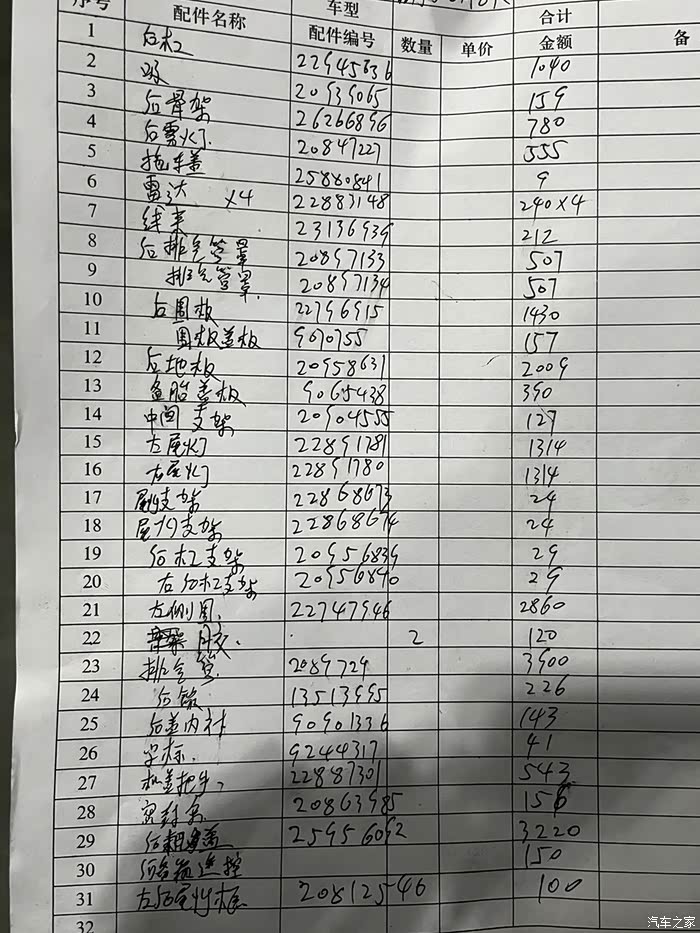 序号 配件名称 车型 配件编号 数量 单价 合计 金额 备
1 后杠
2 22945836 1040
3 20939065 159
4 后骨架 26266896 780
5 后雾灯 20847227 555
6 拖车盖 25880841 9
7 雷达 X4 22883148 240X4
8 线束 23136939 212
9 后排气管罩 20897133 507
10 排气管罩 20897134 507
11 后围板 22796915 1430
12 围板盖板 9070755 157
13 后地板 20958631 2009
14 备胎盖板 9065438 390
15 中间支架 20904555 127
16 左尾灯 22891781 1314
17 右尾灯 22891780 1314
18 支架 22868673 24
19 尾灯支架 22868674 24
20 后杠支架 20956839 29
21 右后杠支架 20956840 29
22 左侧围 22747946 2860
23 2 120
24 排气管 2089729 3900
25 13513995 226
26 后盖内衬 90901336 143
27 字标 9244317 41
28 机盖把手 22887301 543
29 密封条 20863985 156
30 25956092 3220
31 遥控 150
32 左后尾灯框 20812546 100
汽车之家